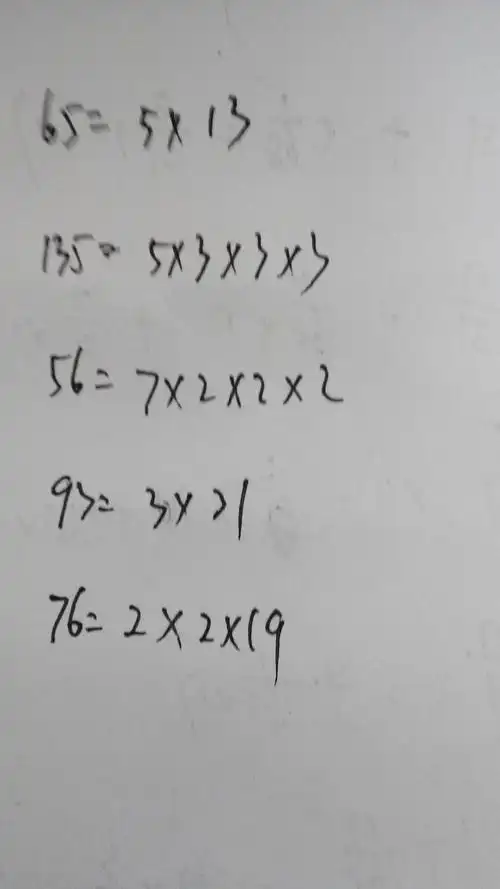 65= 5×13
135= 5×3×3×3
56= 7×2×2×2
93= 3×31
76= 2×2×19